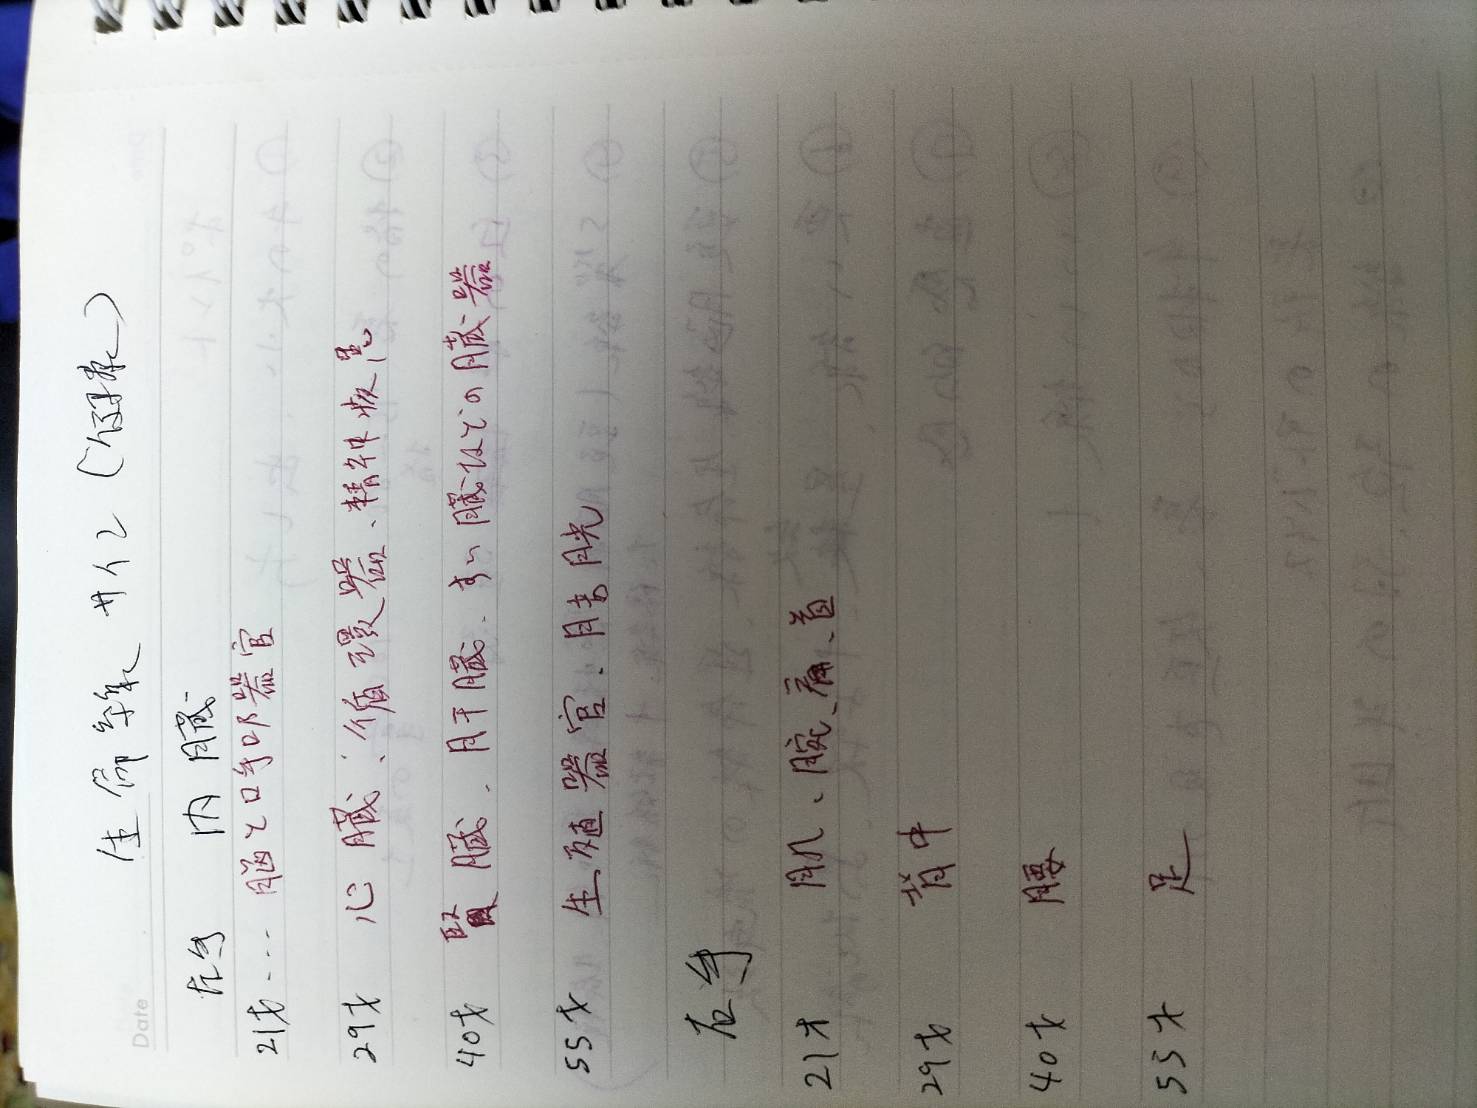 生命線 サイン(健康)
Date
左手 内臓
21才… 脳と呼吸器官
29才 心臓、循環器、精神状態
40才 腎臓、肝臓、すい臓などの臓器
55才 生殖器官、膀胱
右手
21才 肌、腕、肩、首
29才 背中
40才 腰
55才 足